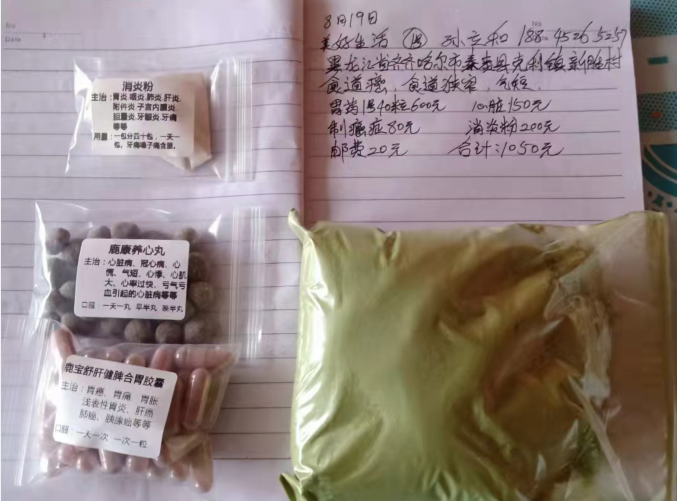 Date
No
8月19日
美好生活 孙立和 188-4526-5257
黑龙江省齐齐哈尔市泰来县克利镇新胜村
食道癌，食道狭窄，气短，
胃药1号40粒600元 心脏150元
制癌症80元 消炎粉200元
邮费20元 合计：1050元
消炎粉
主治：胃炎.咽炎.肺炎.肝炎.
附件炎.子宫内膜炎.
胆囊炎.牙龈炎.牙痛
等等
用量：一包分四十包，一天一
包。牙痛嗓子痛含服。
鹿康养心丸
主治：心脏病、冠心病、心
慌、气短、心悸、心肌
大、心率过快、亏气亏
血引起的心脏病等等
口服：一天一丸 早半丸 晚半丸
鹿宝舒肝健脾合胃胶囊
主治：胃癌、胃痛、胃胀
浅表性胃炎、肝癌
肺癌、胰腺癌等等
口服：一天一次 一次一粒